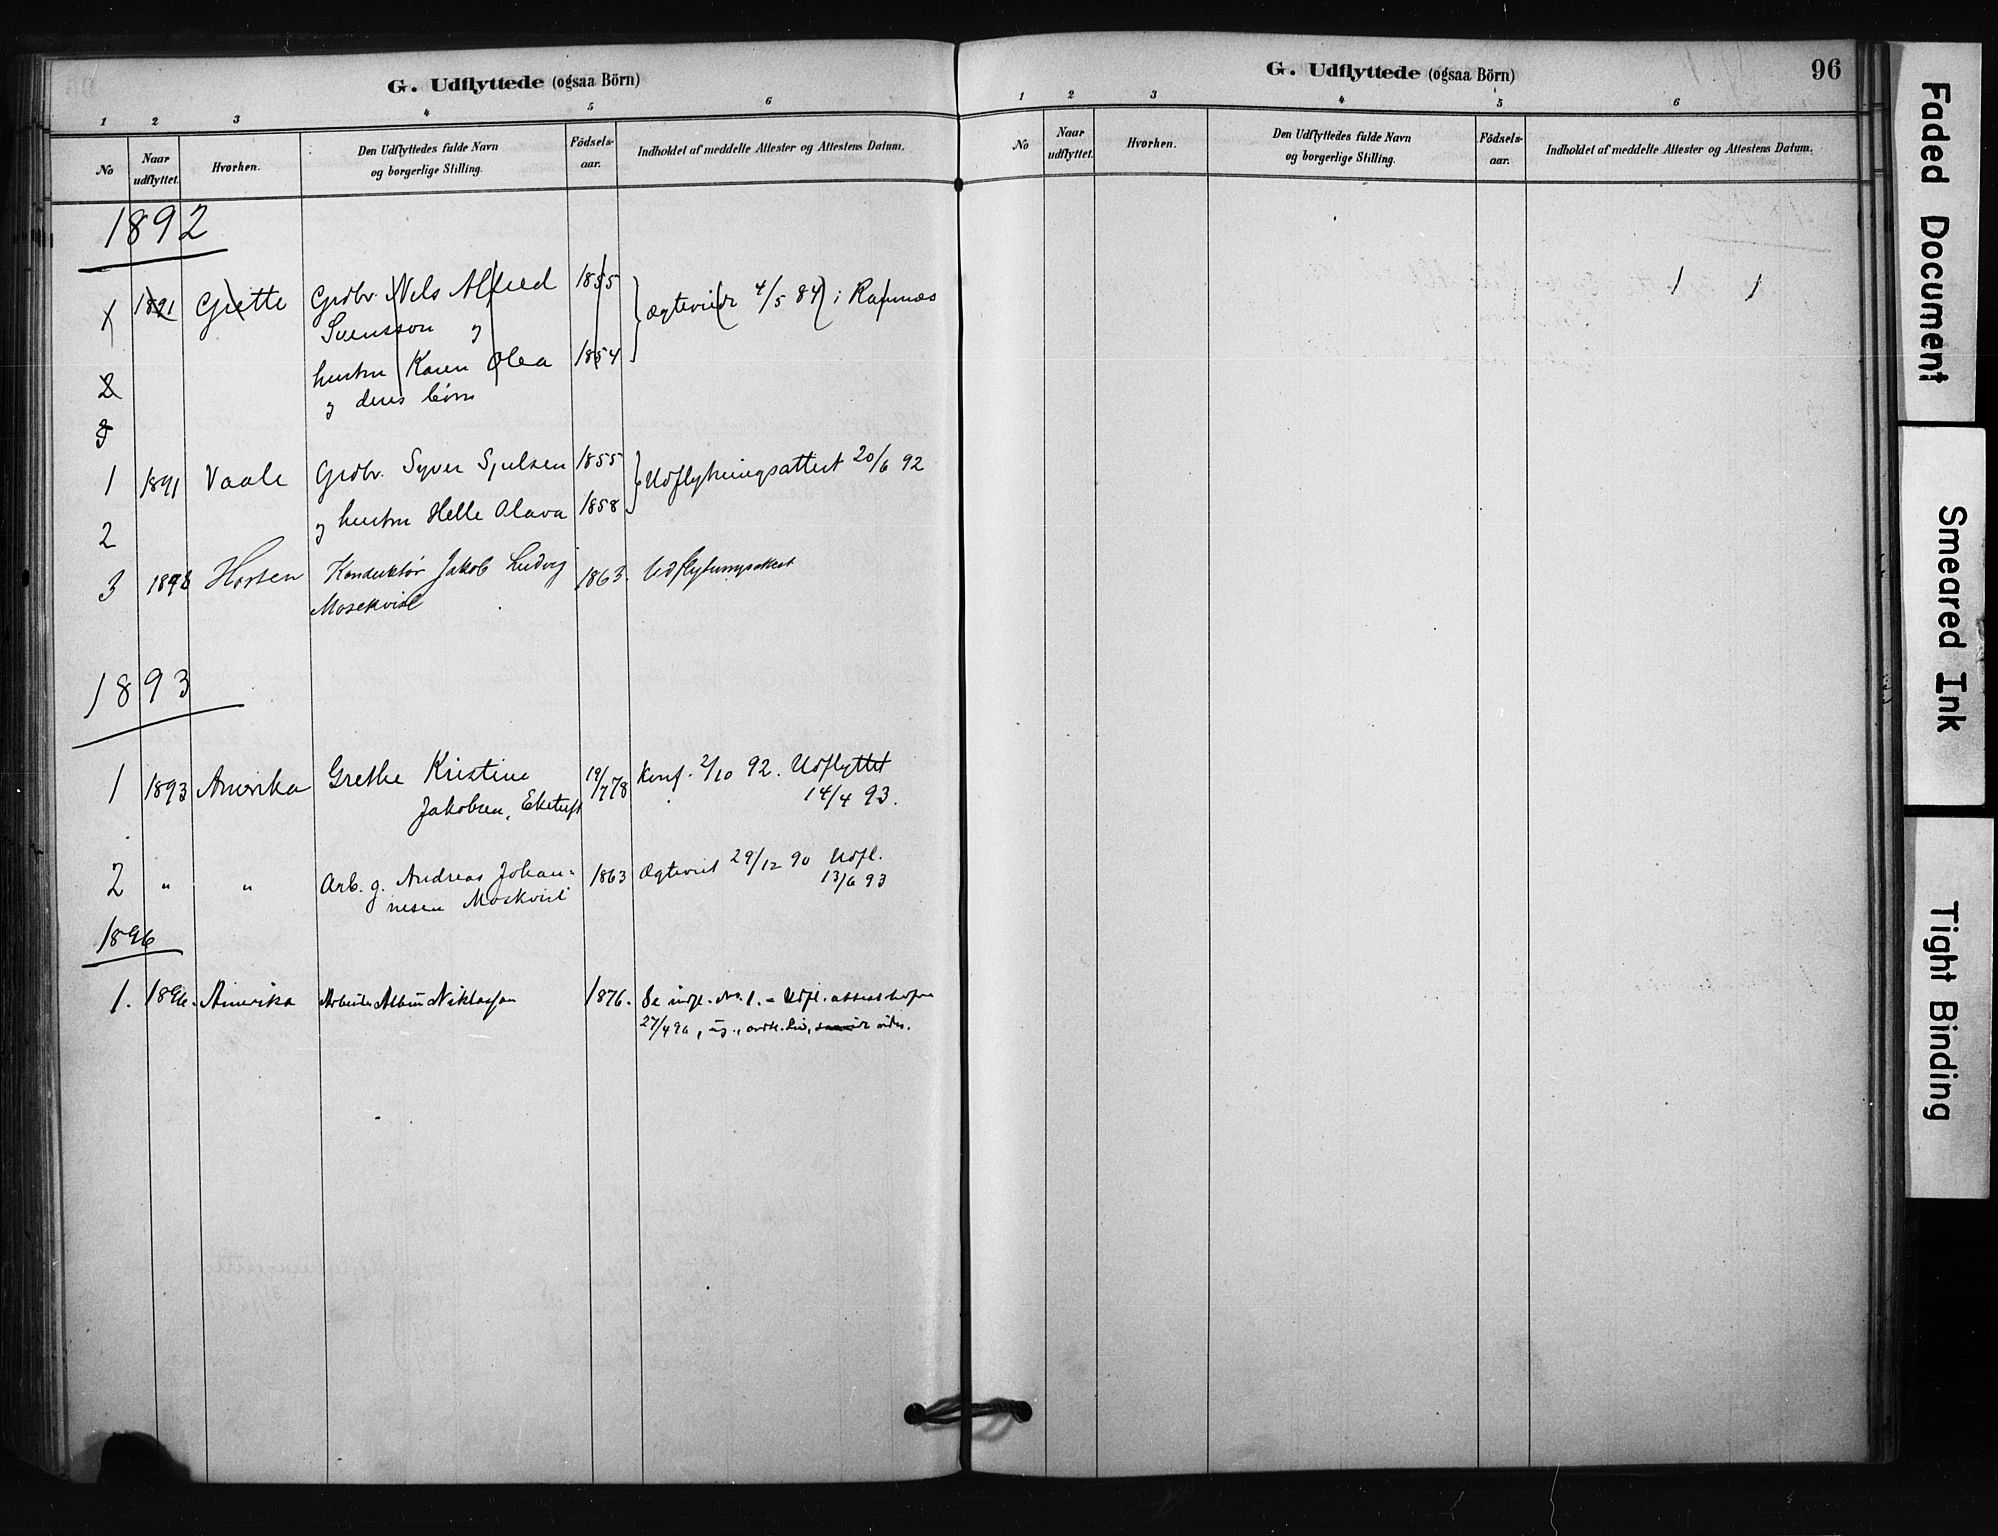 G. Udflyttede (ogsaa Börn)
1 2 3 4 5 6
No Naar udflyttet. Hvorhen. Den Udflyttedes fulde Navn og borgerlige Stilling. Födsels-aar. Indholdet af meddelte Attester og Attestens Datum.
1892
1 1891 Grette Grdbr. Nels Alfred 1855 Ægteviede 4/5 84 i Ramnæs
Svensson og
2 hustru Karen Olea 1854
og deres børn
3
1 1891 Vaale Grdbr. Syver Sjulsen 1855 Udflytningsattest 20/6 92
2 og hustru Helle Olava 1858
3 1893 Horten Konduktør Jakob Ludvig 1863. Udflytningsattest
Mosekvist
1893
1 1893 Amerika Grethe Kristine 19/7 78 Konf. 2/10 92. Udflyttet
Jakobsen, 14/4 93.
2 " " Arb. g. Andreas Johan- 1863 Ægteviet 29/12 90 Udfl.
nesen Moskvist 13/6 93
1896
1. 1896. Amerika Arbeider Albin Niklasson 1876. Se indfl. No. 1. - Udfl. attest
27/4 96, ug.,
G. Udflyttede (ogsaa Börn) 96
1 2 3 4 5 6
No Naar udflyttet. Hvorhen. Den Udflyttedes fulde Navn og borgerlige Stilling. Födsels-aar. Indholdet af meddelte Attester og Attestens Datum.
Faded Document
Smeared Ink
Tight Binding